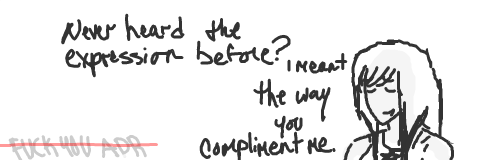 Never heard the
expression before?
I meant
the way
you
compliment me.
FUCK YOU ADR